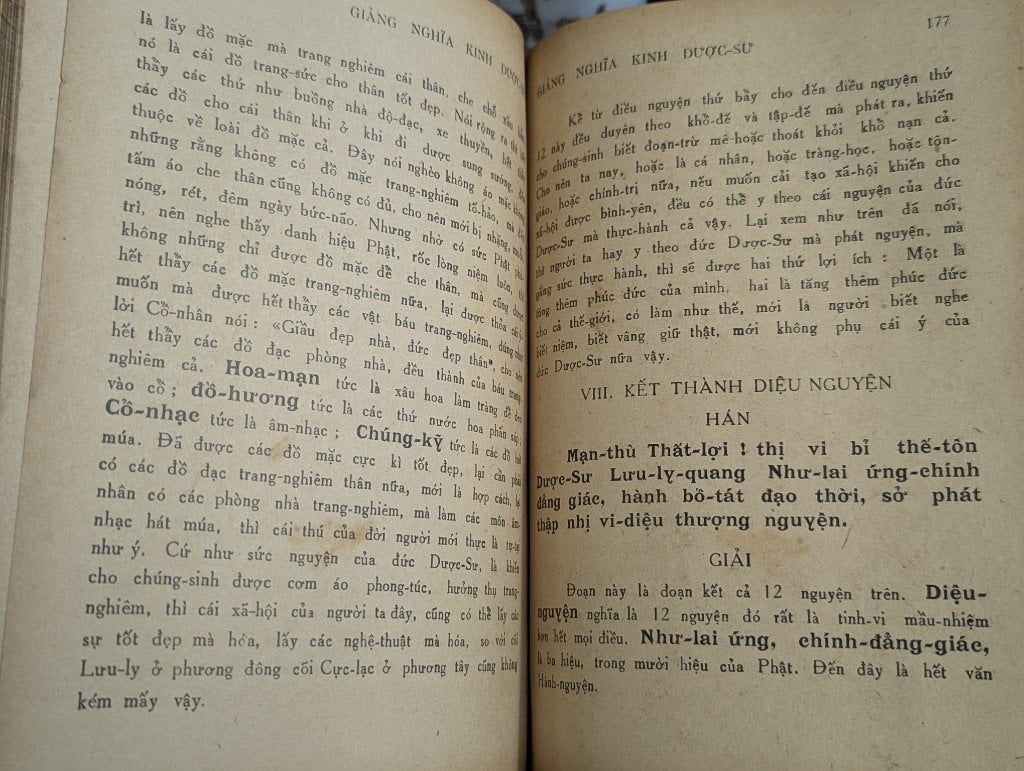 GIẢNG NGHĨA KINH DƯỢC-
là lấy đồ mặc mà trang nghiêm cái thân, che chỗ xấu
nó là cái đồ trang-sức cho thân tốt đẹp. Nói rộng ra thì
thẩy các thứ như buồng nhà độ-đạc, xe thuyền, hết
các đồ cho cái thân khi ở khi đi được sung sướng, đều
thuộc về loài đồ mặc cả. Đây nói nghèo không áo mặc không
những rằng không có đồ mặc trang-nghiêm tố-hảo, mà đến
tấm áo che thân cũng không có đủ, cho nên mới bị nhặng, muỗi
nóng, rét, đêm ngày bức-não. Nhưng nhờ có sức Phật
trì, nên nghe thấy danh hiệu Phật, rốc lòng niệm luôn, thì
không những chỉ được đồ mặc để che thân, mà cũng được
hết thẩy các đồ mặc trang-nghiêm nữa, lại được thỏa cái ý
muốn mà được hết thẩy các vật báu trang-nghiêm, đúng như
lời Cổ-nhân nói : «Giầu đẹp nhà, đức đẹp thân", cho nên
hết thẩy các đồ đạc phòng nhà, đều thành của báu trang-
nghiêm cả. Hoa-mạn tức là xâu hoa làm tràng để đeo
vào cổ ; đồ-hương tức là các thứ nước hoa phấn sáp ;
Cổ-nhạc tức là âm-nhạc ; Chúng-kỹ tức là các đồ hát
múa. Đã được các đồ mặc cực kì tốt đẹp, lại cần phải
có các đồ đạc trang-nghiêm thân nữa, mới là hợp cách, lại
nhân có các phòng nhà trang-nghiêm, mà làm các môn âm-
nhạc hát múa, thì cái thú của đời người mới thực là tự-tại
như ý. Cứ như sức nguyện của đức Dược-Sư, là khiến
cho chúng-sinh được cơm áo phong-túc, hưởng thụ trang-
nghiêm, thì cái xã-hội của người ta đây, cũng có thể lấy các
sự tốt đẹp mà hóa, lấy các nghệ-thuật mà hóa, so với cõi
Lưu-ly ở phương đông cõi Cực-lạc ở phương tây cũng không
kém mấy vậy.
GIẢNG NGHĨA KINH DƯỢC-SƯ
177
Kể từ điều nguyện thứ bẩy cho đến điều nguyện thứ
12 này đều duyên theo khổ-đế và tập-đế mà phát ra, khiến
cho chúng-sinh biết đoạn-trừ mê-hoặc thoát khỏi khổ nạn cả.
Cho nên ta nay, hoặc là cá nhân, hoặc tràng-học, hoặc tôn-
giáo, hoặc chính-trị nữa, nếu muốn cải tạo xã-hội khiến cho
xã-hội được bình-yên, đều có thể y theo cái nguyện của đức
Dược-Sư mà thực-hành cả vậy. Lại xem như trên đã nói,
thì người ta hay y theo đức Dược-Sư mà phát nguyện, mà
gắng sức thực hành, thì sẽ được hai thứ lợi ích : Một là
tăng thêm phúc đức của mình, hai là tăng thêm phúc đức
cho cả thế-giới, có làm như thế, mới là người biết nghe
biết niệm, biết vâng giữ thật, mới không phụ cái ý của
đức Dược-Sư nữa vậy.
VIII. KẾT THÀNH DIỆU NGUYỆN
HÁN
Mạn-thù Thất-lợi ! thị vi bỉ thế-tôn
Dược-Sư Lưu-ly-quang Như-lai ứng-chính
đẳng giác, hành bồ-tát đạo thời, sở phát
thập nhị vi-diệu thượng nguyện.
GIẢI
Đoạn này là đoạn kết cả 12 nguyện trên. Diệu-
nguyện nghĩa là 12 nguyện đó rất là tinh-vi mầu-nhiệm
hơn hết mọi điều. Như-lai ứng, chính-đẳng-giác,
là ba hiệu, trong mười hiệu của Phật. Đến đây là hết văn
Hành-nguyện.